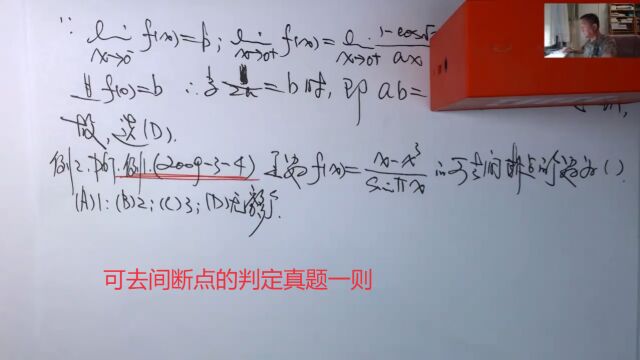 ∵ lim x→0⁻ f(x)=b; lim x→0⁺ f(x)=lim 1-cos√ ax
且 f(0)=b ∴当 1/2a = b 时, 即 ab=
故, 选(D).
例2: 例1.(2009-3-4) 函数 f(x)= x-x³ / sinπx 的可去间断点的个数为( ).
(A)1; (B)2; (C)3; (D)无穷多个.
可去间断点的判定真题一则